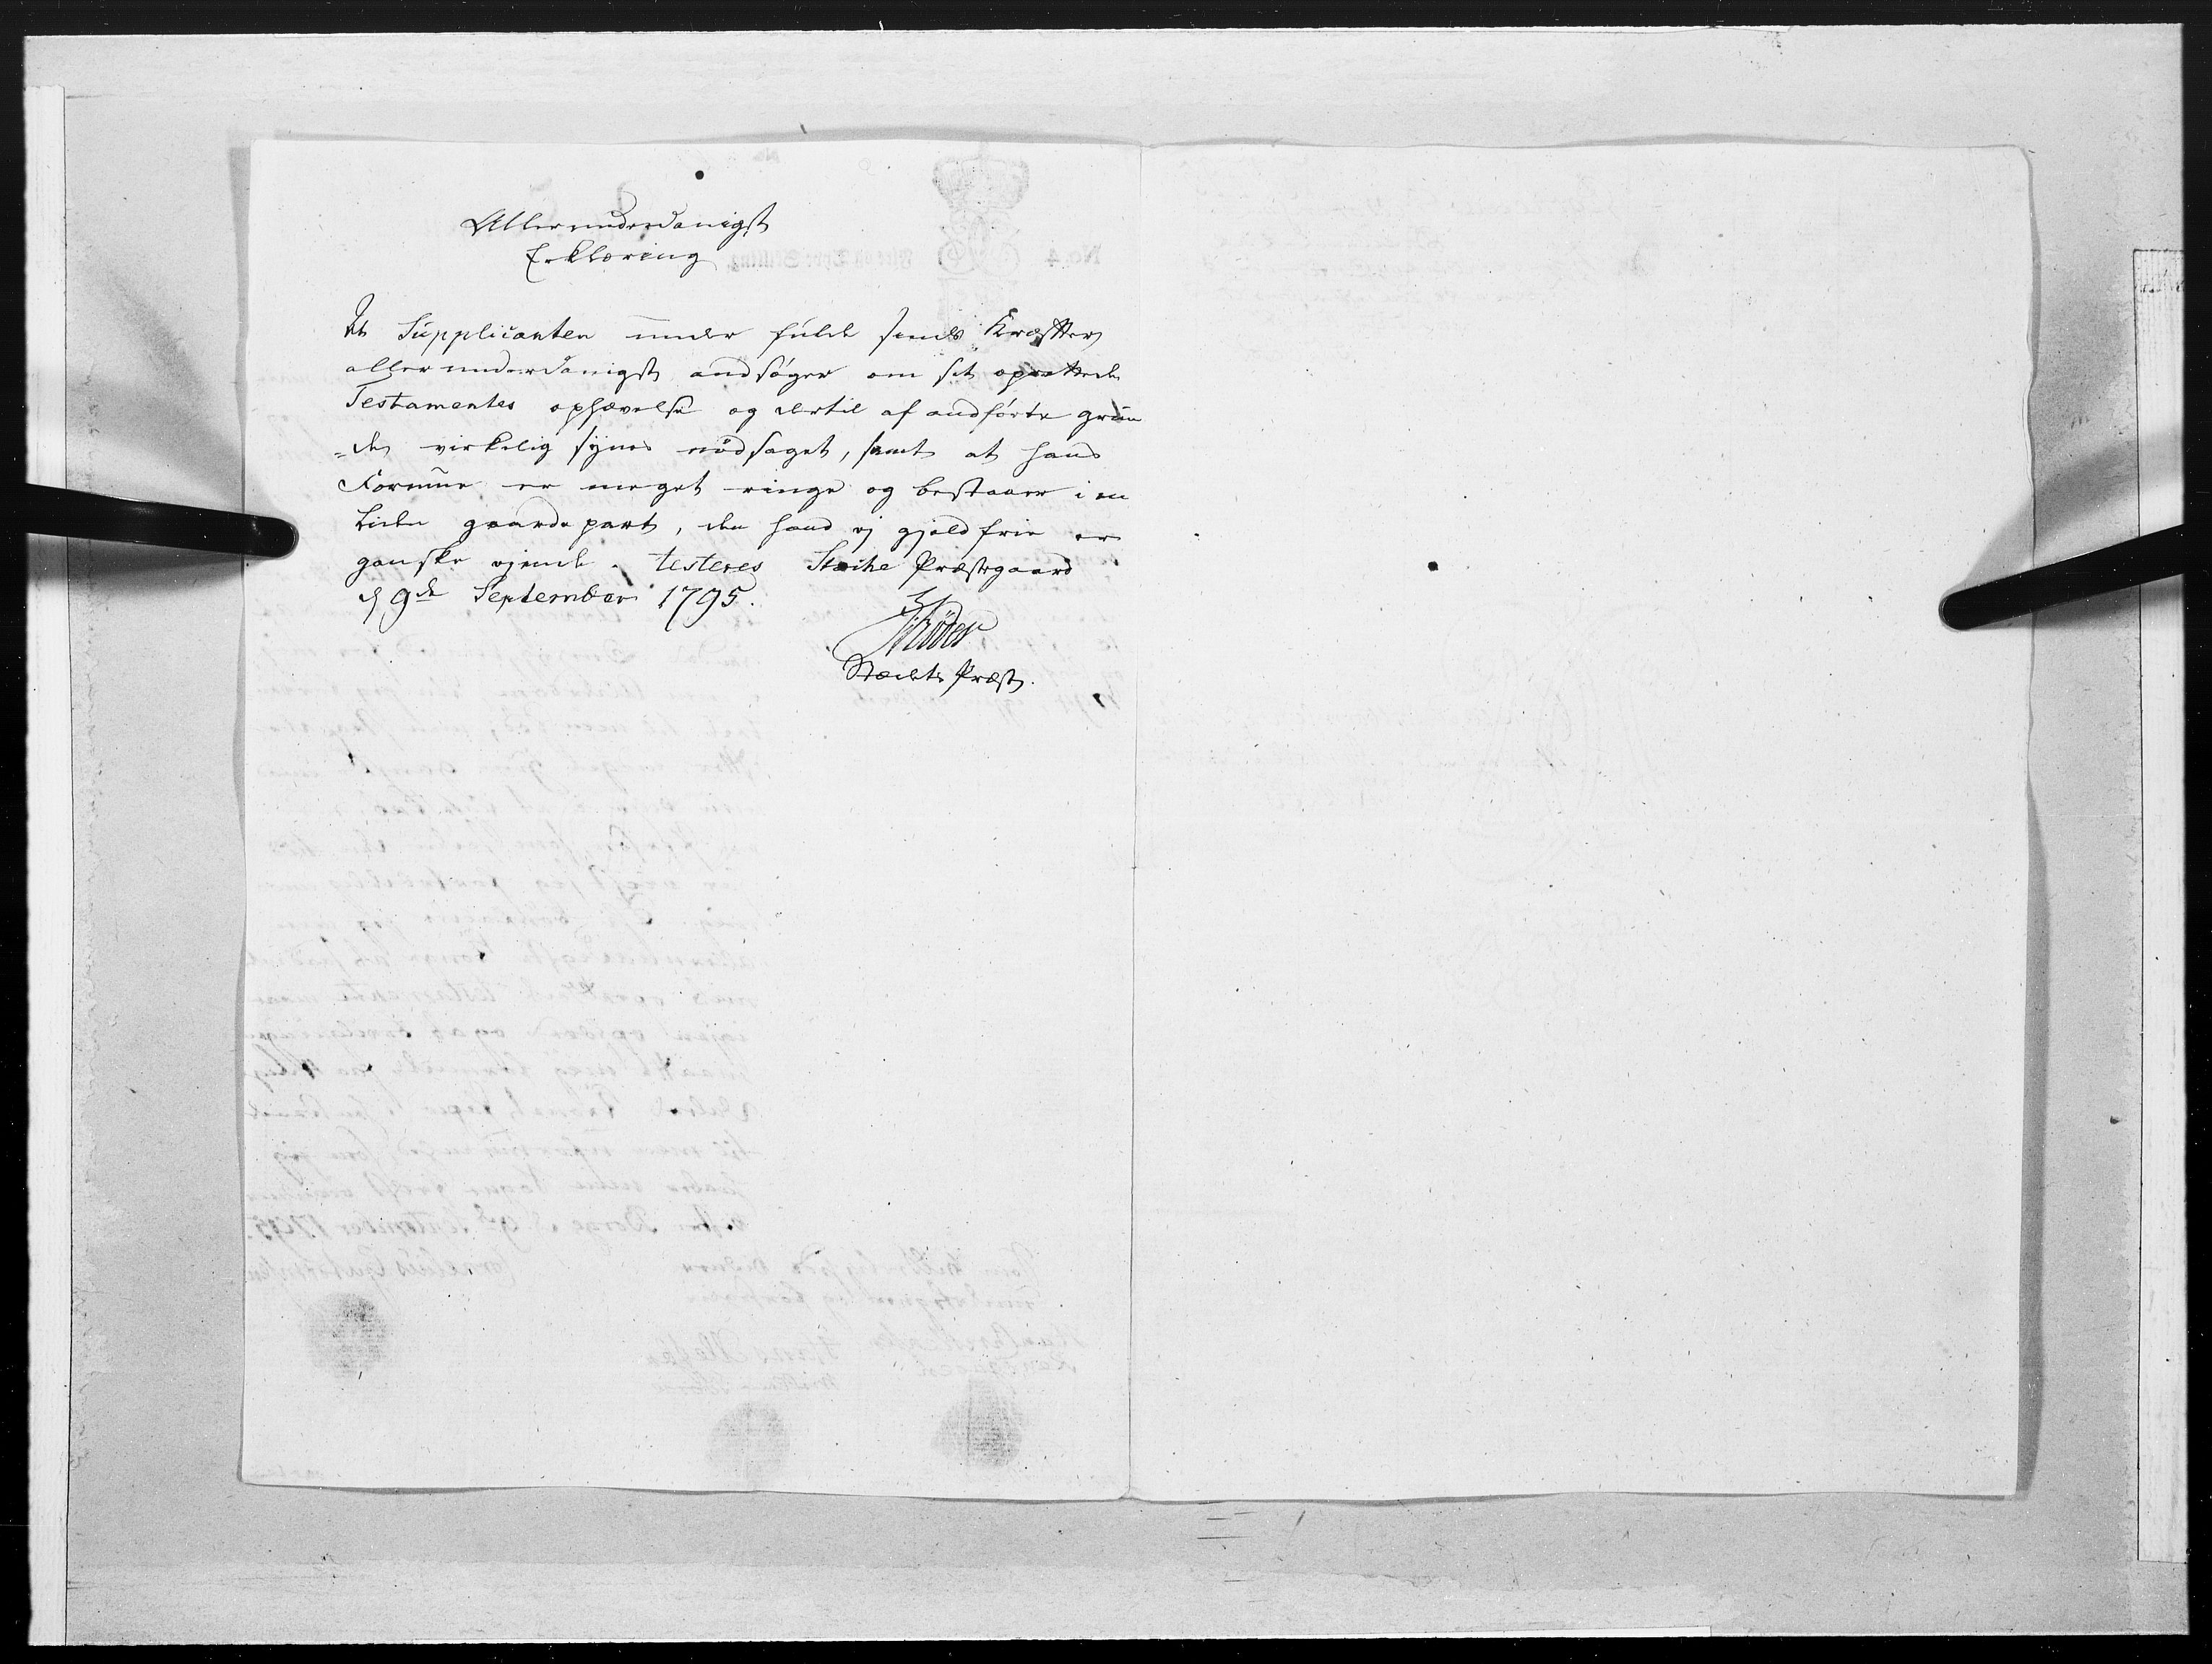 Allerunderdanigst
Erklæring
At Supplicanten under fulde sends Kræfter
allerunderdanigst andsøger om sit oprettede
Testamentes ophævelse og dertil af andførte grun
=de virkelig synes nødsaget, samt at hans
Formue er meget ringe og bestaaer i en
liden gaardepart, den hand ej gjeldfrie er
ganske ejende. testeres Præstegaard
d 9de September 1795.
Præst.
No. 4